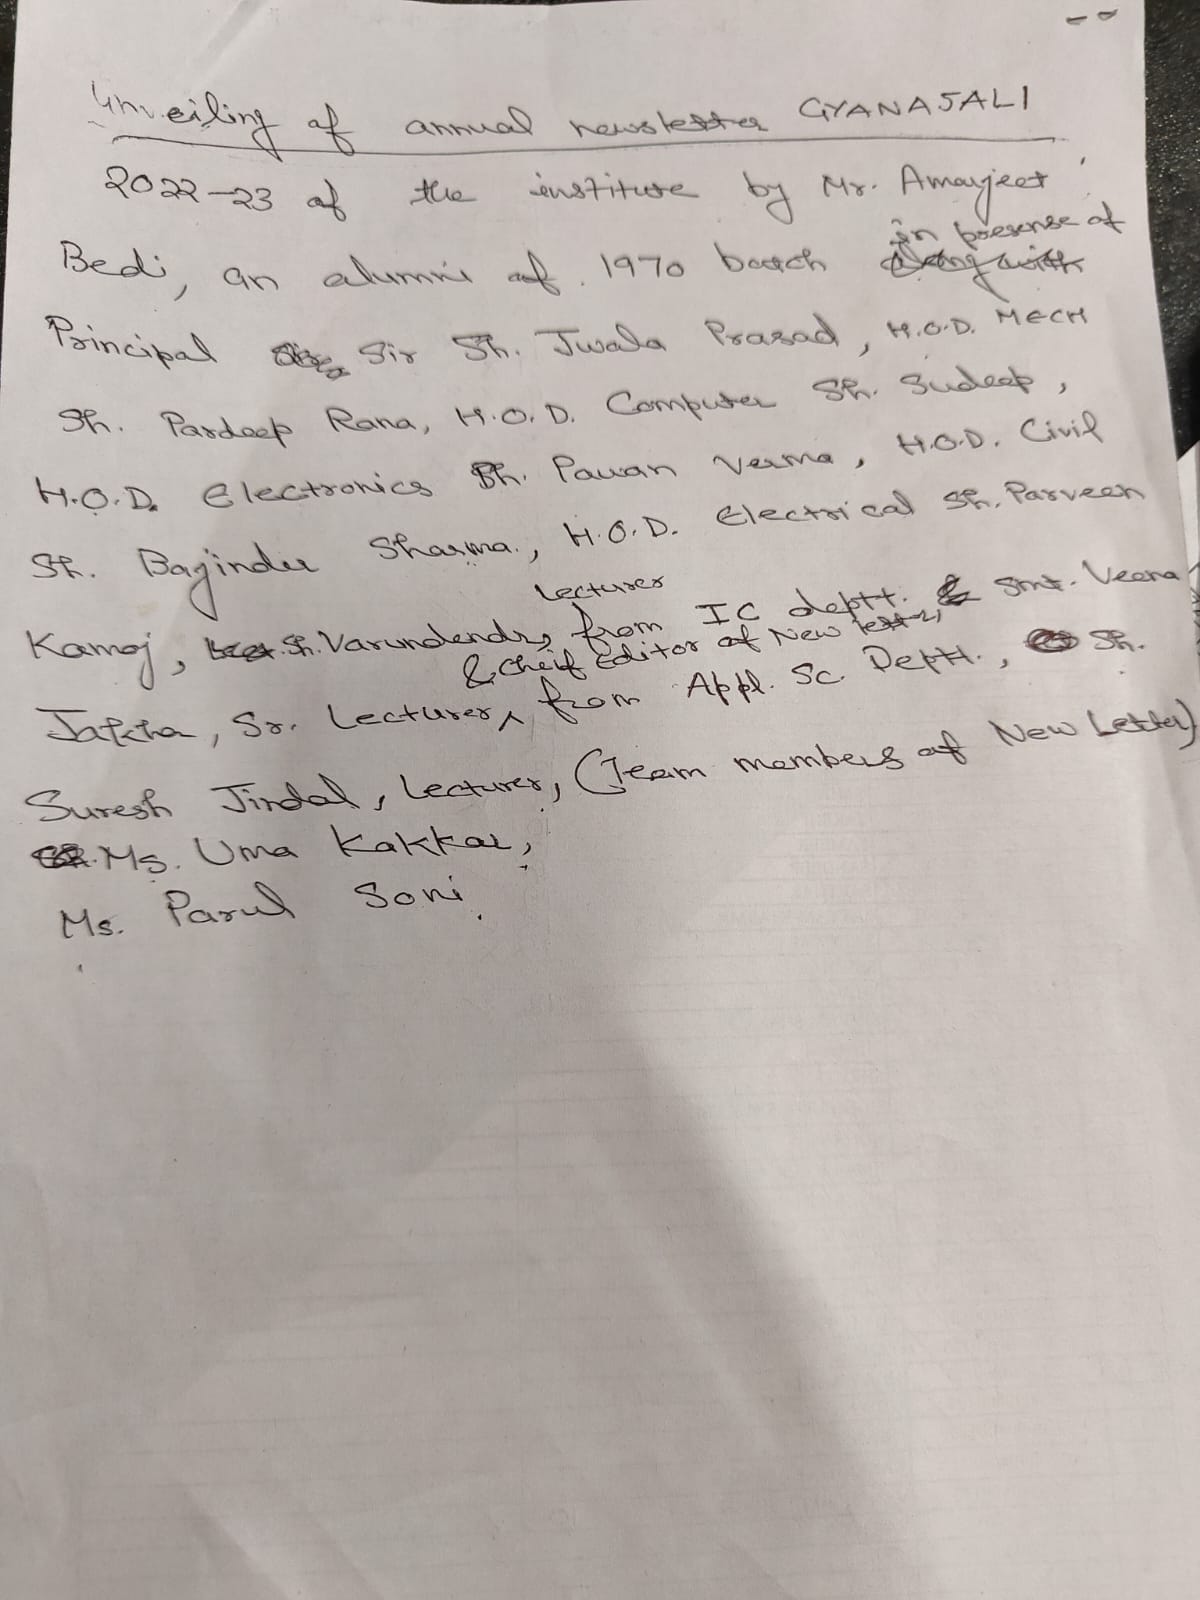 Unveiling of annual newsletter GYANAJALI
2022-23 of the institute by Mr. Amarjeet
in presense of
Bedi, an alumni of 1970 batch along with
Principal Sir Sh. Jwala Prasad, H.O.D. MECH
Sh. Pardeep Rana, H.O.D. Computer Sh. Sudeep,
H.O.D. Electronics Sh. Pawan Verma, H.O.D. Civil
Sh. Bajinder Sharma, H.O.D. Electrical Sh. Parveen
Lecturer
Kamoj, Sh. Varundendra, from IC deptt. & Smt. Veena
& Cheif Editor of New letter,
Jakha, Sr. Lecturer, from Appl. Sc. Deptt., Sh.
Suresh Jindal, Lecturer, (Team members of New Letter)
Ms. Uma Kakkar,
Ms. Parul Soni.